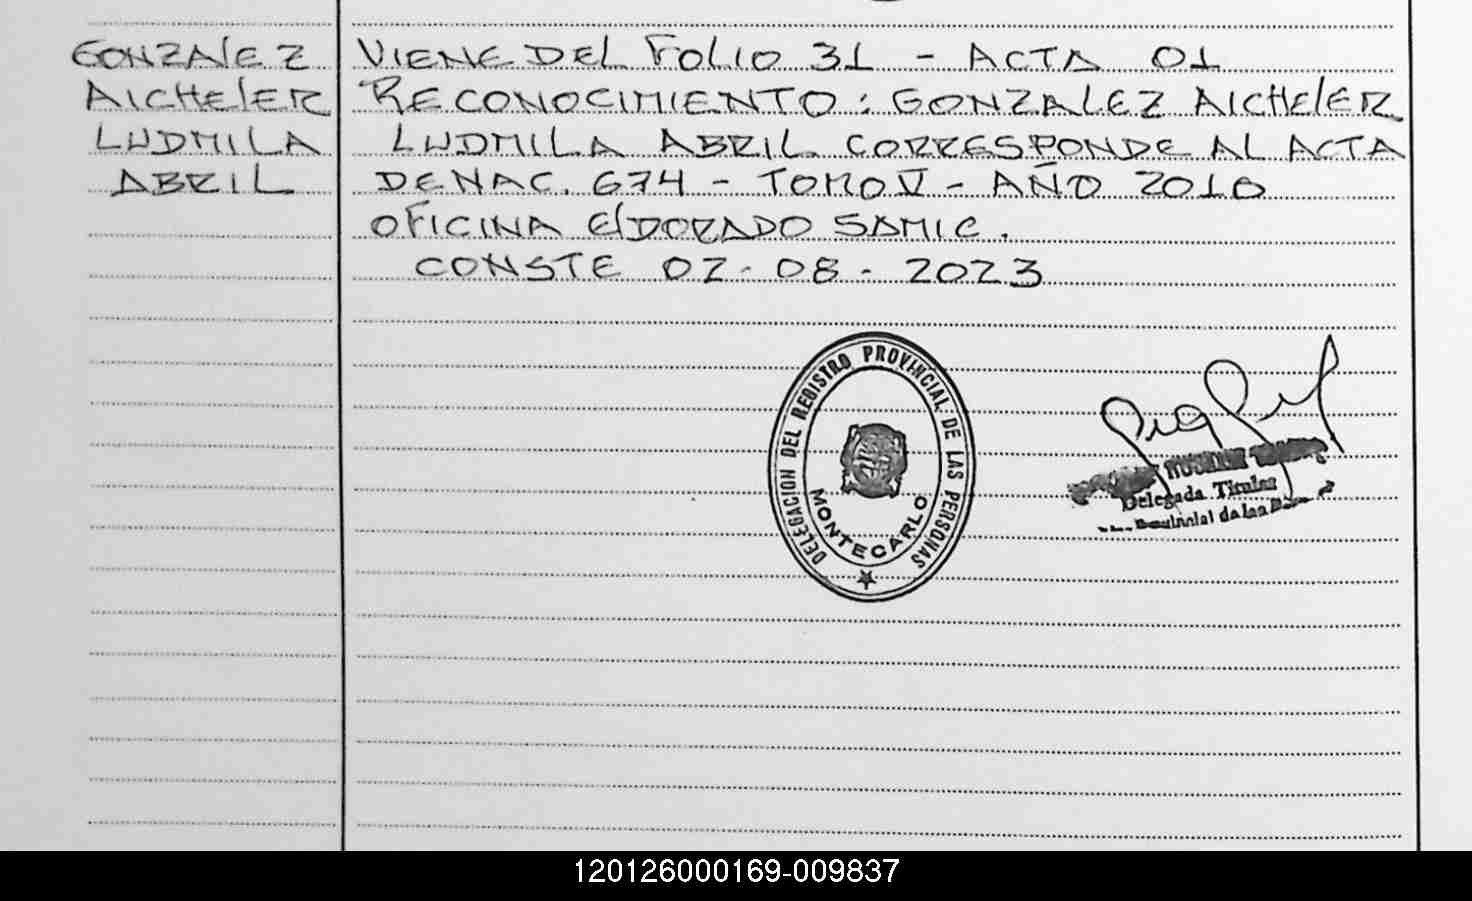 GONZAlEZ
AICHElER
LUDMILA
ABRIL
VIENE DEL FOLIO 31 - ACTA 01
RECONOCIMIENTO: GONZALEZ AICHElER
LUDMILA ABRIL CORRESPONDE AL ACTA
DE NAC. 674 - TOMO V - AÑO 2010
OFICINA ElDORADO SAMIC.
CONSTE 02-08-2023
DELEGACION DEL REGISTRO PROVINCIAL DE LAS PERSONAS
MONTECARLO
Delegada Titular
de las
120126000169-009837